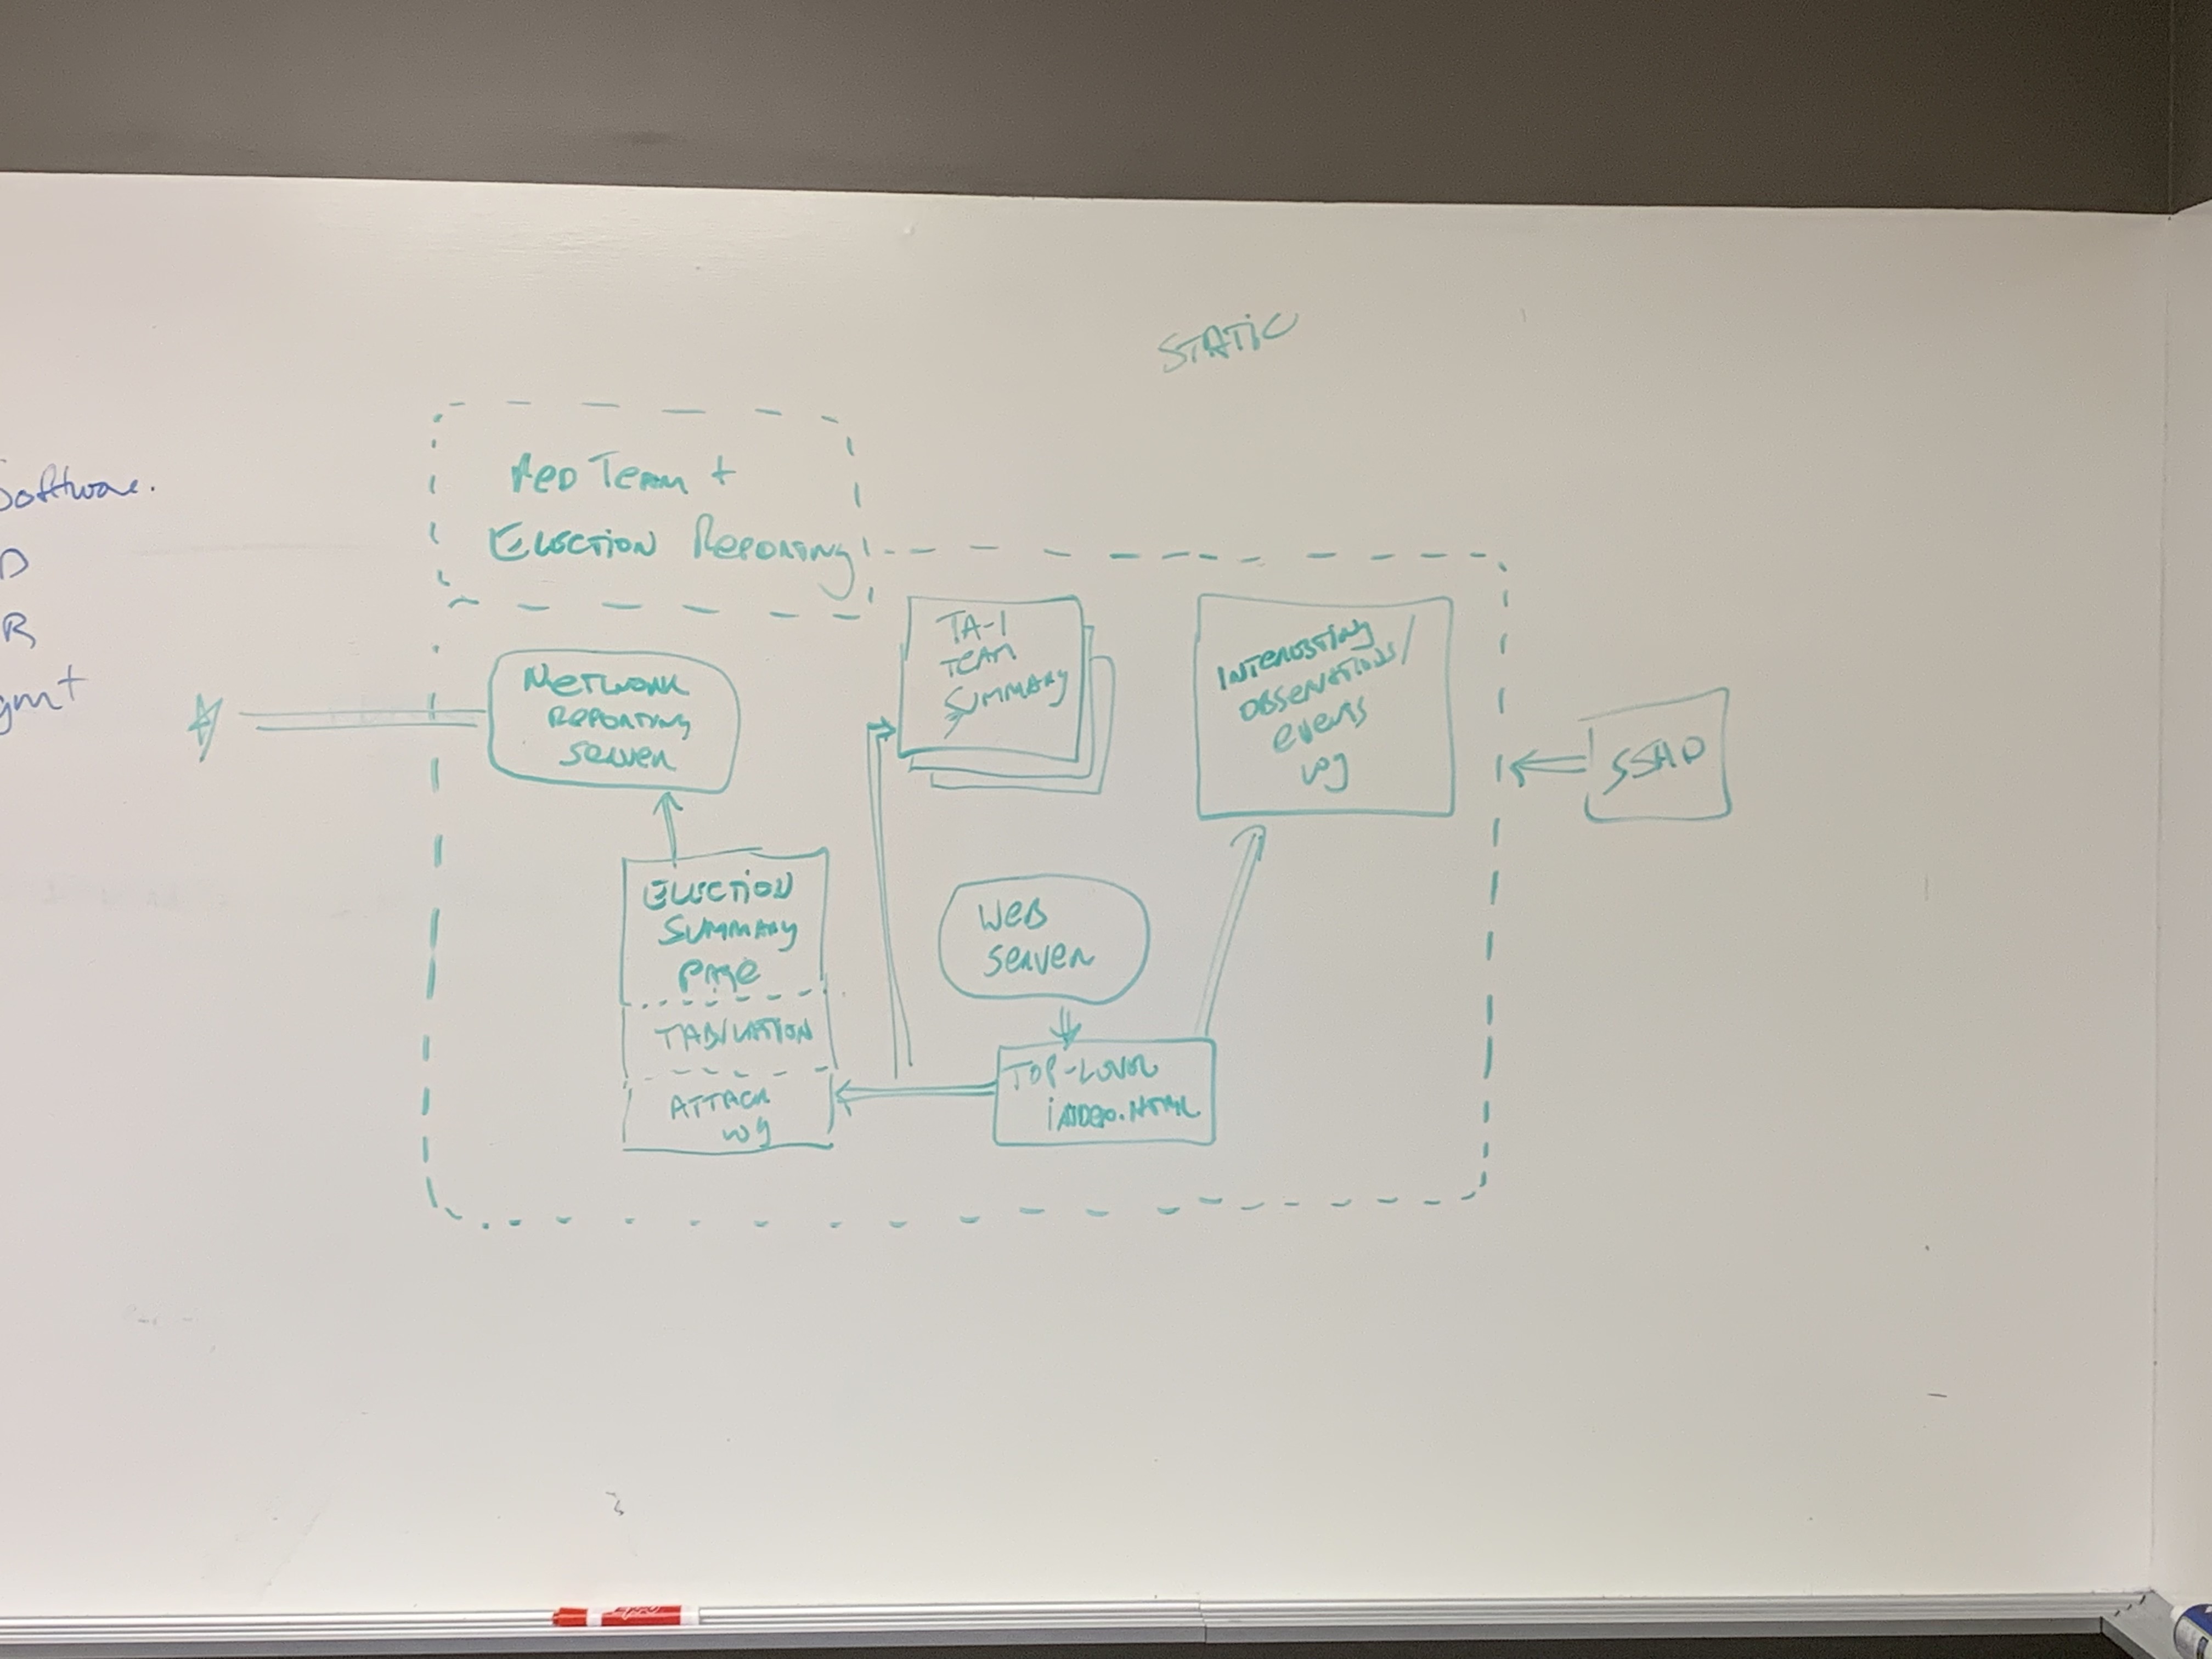 STATIC
Software.
D
R
gmt
Red Team +
Election Reporting
Network
Reporting
Server
TA-1
Team
Summary
Interesting
Observations/
events
log
SSHD
Election
Summary
Page
Tabulation
Attack
log
Web
Server
Top-Level
index.html